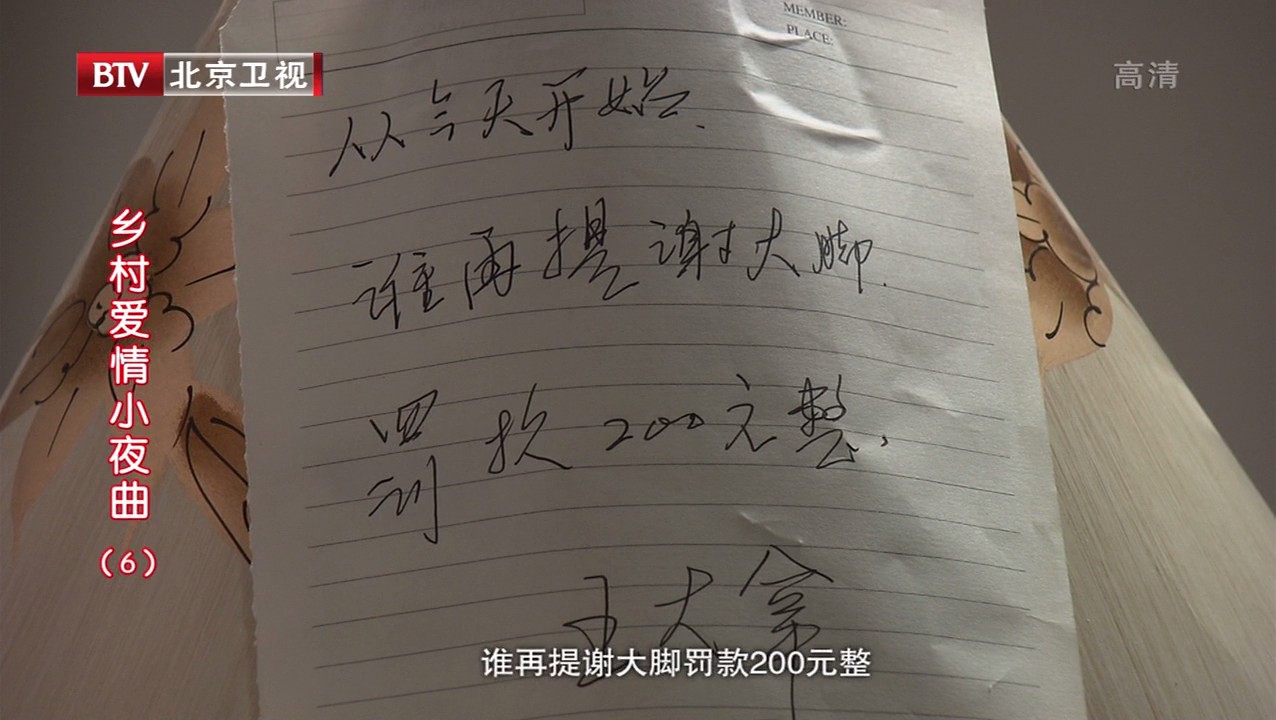 MEMBER:
PLACE:
BTV 北京卫视
高清
从今天开始.
谁再提谢大脚.
罚款200元整.
王大拿
乡村爱情小夜曲
(6)
谁再提谢大脚罚款200元整